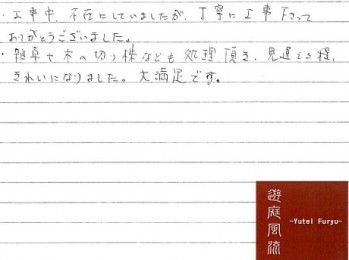 ・工事中、不在にしていましたが、丁寧に工事下さって
ありがとうございました。
・雑草や木の切り株なども処理頂き、見違える程、
きれいになりました。大満足です。
遊庭風流
-Yutei Furyu-